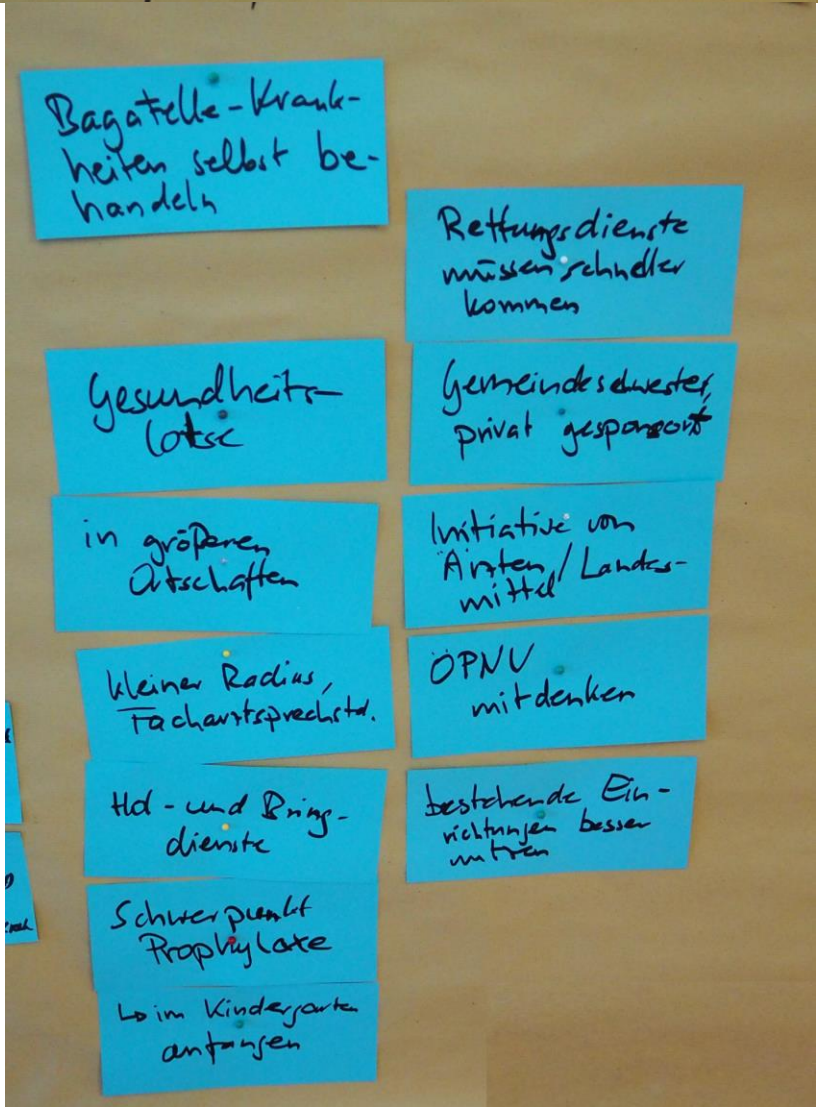 Bagatelle-Krank-
heiten selbst be-
handeln
Gesundheits-
lotse
in größeren
Ortschaften
kleiner Radius,
Facharztsprechstd.
Hol- und Bring-
dienste
Schwerpunkt
Prophylaxe
↳ im Kindergarten
anfangen
Rettungsdienste
müssen schneller
kommen
Gemeindeschwester,
privat gesponsort
Initiative von
Ärzten/Landes-
mittel
ÖPNV
mitdenken
bestehende Ein-
richtungen besser
nutzen